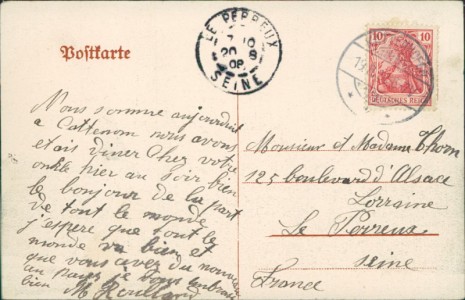 Postkarte
LE PERREUX
7 10
20 8
08
SEINE
10 10
DEUTSCHES REICH
Nous somme aujourd'hui
a Cattenom nous avons
etais diner chez votre
oncle hier au soir bien
le bonjour de la part
de tout le monde
j'espere que tout le
monde va bien et
que vous avez du nouveau
au pays je vous embrasse
bien M Roulland
Monsieur et Madame Thorn
125 boulevard d'Alsace
Lorraine
Le Perreux
Seine
France